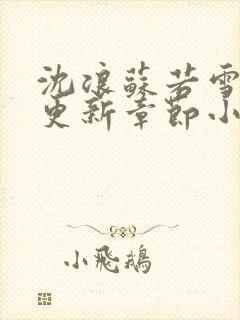 沈浪蘇若雪
更新章節小
小飛鵝